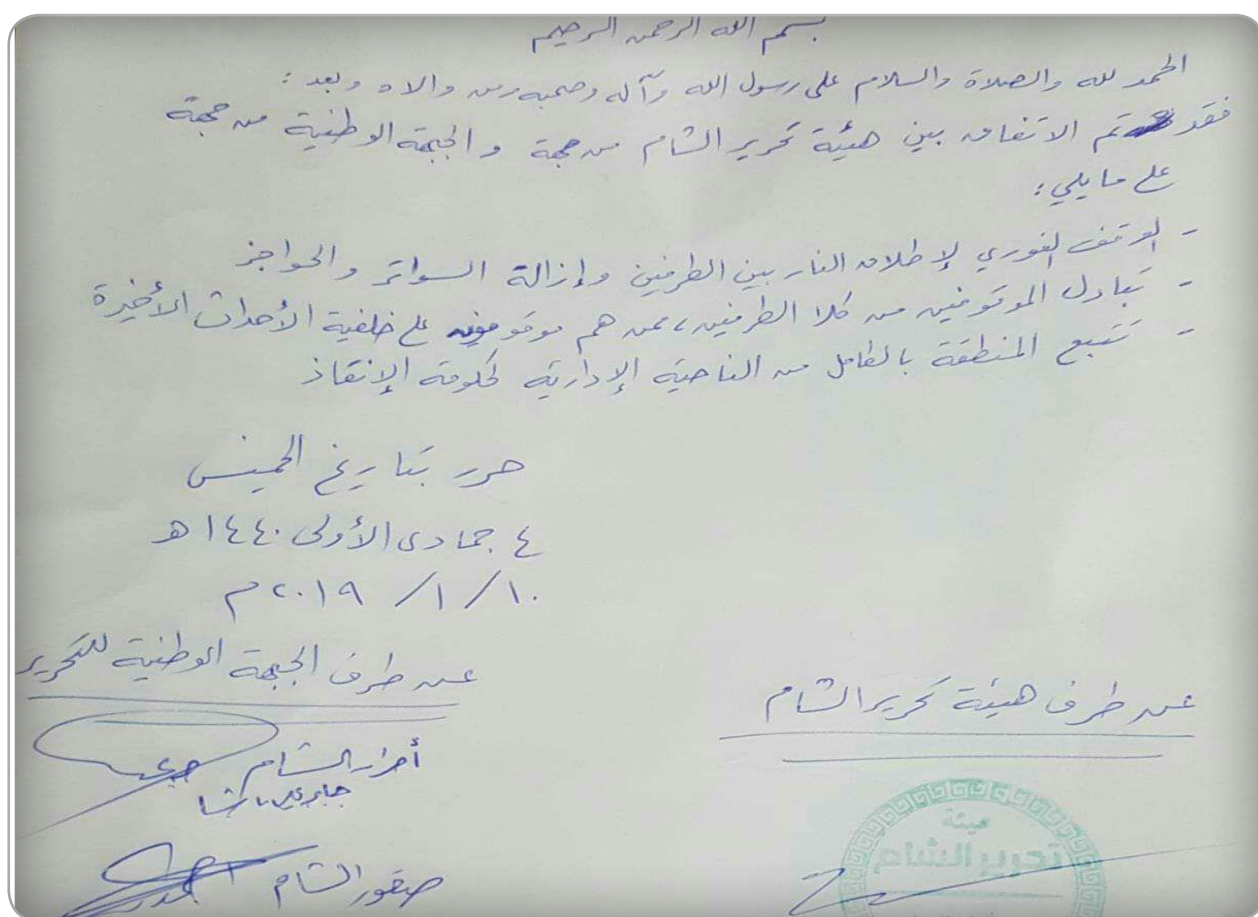 بسم الله الرحمن الرحيم
الحمد لله والصلاة والسلام على رسول الله وآله وصحبه ومن والاه وبعد :
فقد تم الاتفاق بين هيئة تحرير الشام من جهة والجبهة الوطنية من جهة
على ما يلي :
- الوقف الفوري لإطلاق النار بين الطرفين وإزالة السواتر والحواجز
- تبادل الموقوفين من كلا الطرفين، ممن هم موقوفون على خلفية الأحداث الأخيرة
- تتبع المنطقة بالكامل من الناحية الإدارية لحكومة الإنقاذ
حرر بتاريخ الخميس
٤ جمادى الأولى ١٤٤٠ هـ
١٠/ ١/ ٢٠١٩ م
عن طرف الجبهة الوطنية للتحرير
عن طرف هيئة تحرير الشام
أحرار الشام
جابر علي باشا
صقور الشام
هيئة
تحرير الشام